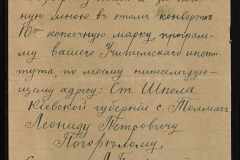 ную мною в этом конверте
10ти копеечную марку, програм-
му вашего Учительскаго инсти-
тута, по моему нижеследую-
щему адресу: Ст. Шпола
Кіевской губерніи с. Толмач
Леониду Петровичу
Погорѣлому,